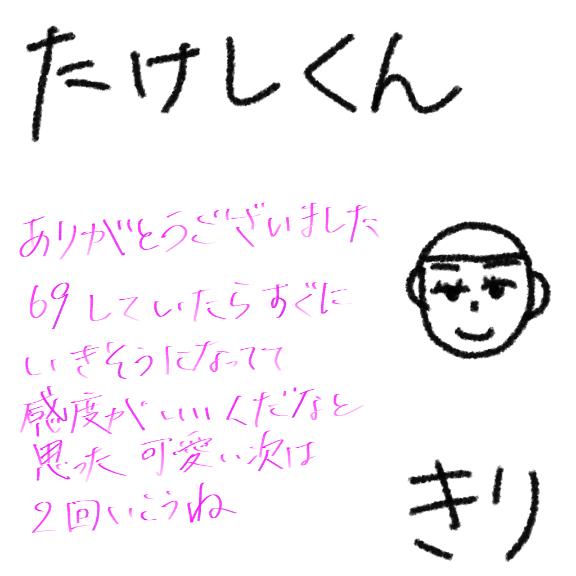 たけしくん
ありがとうございました
69していたらすぐに
いきそうになってて
感度がいいくだなと
思った 可愛い次は
2回いこうね
きり